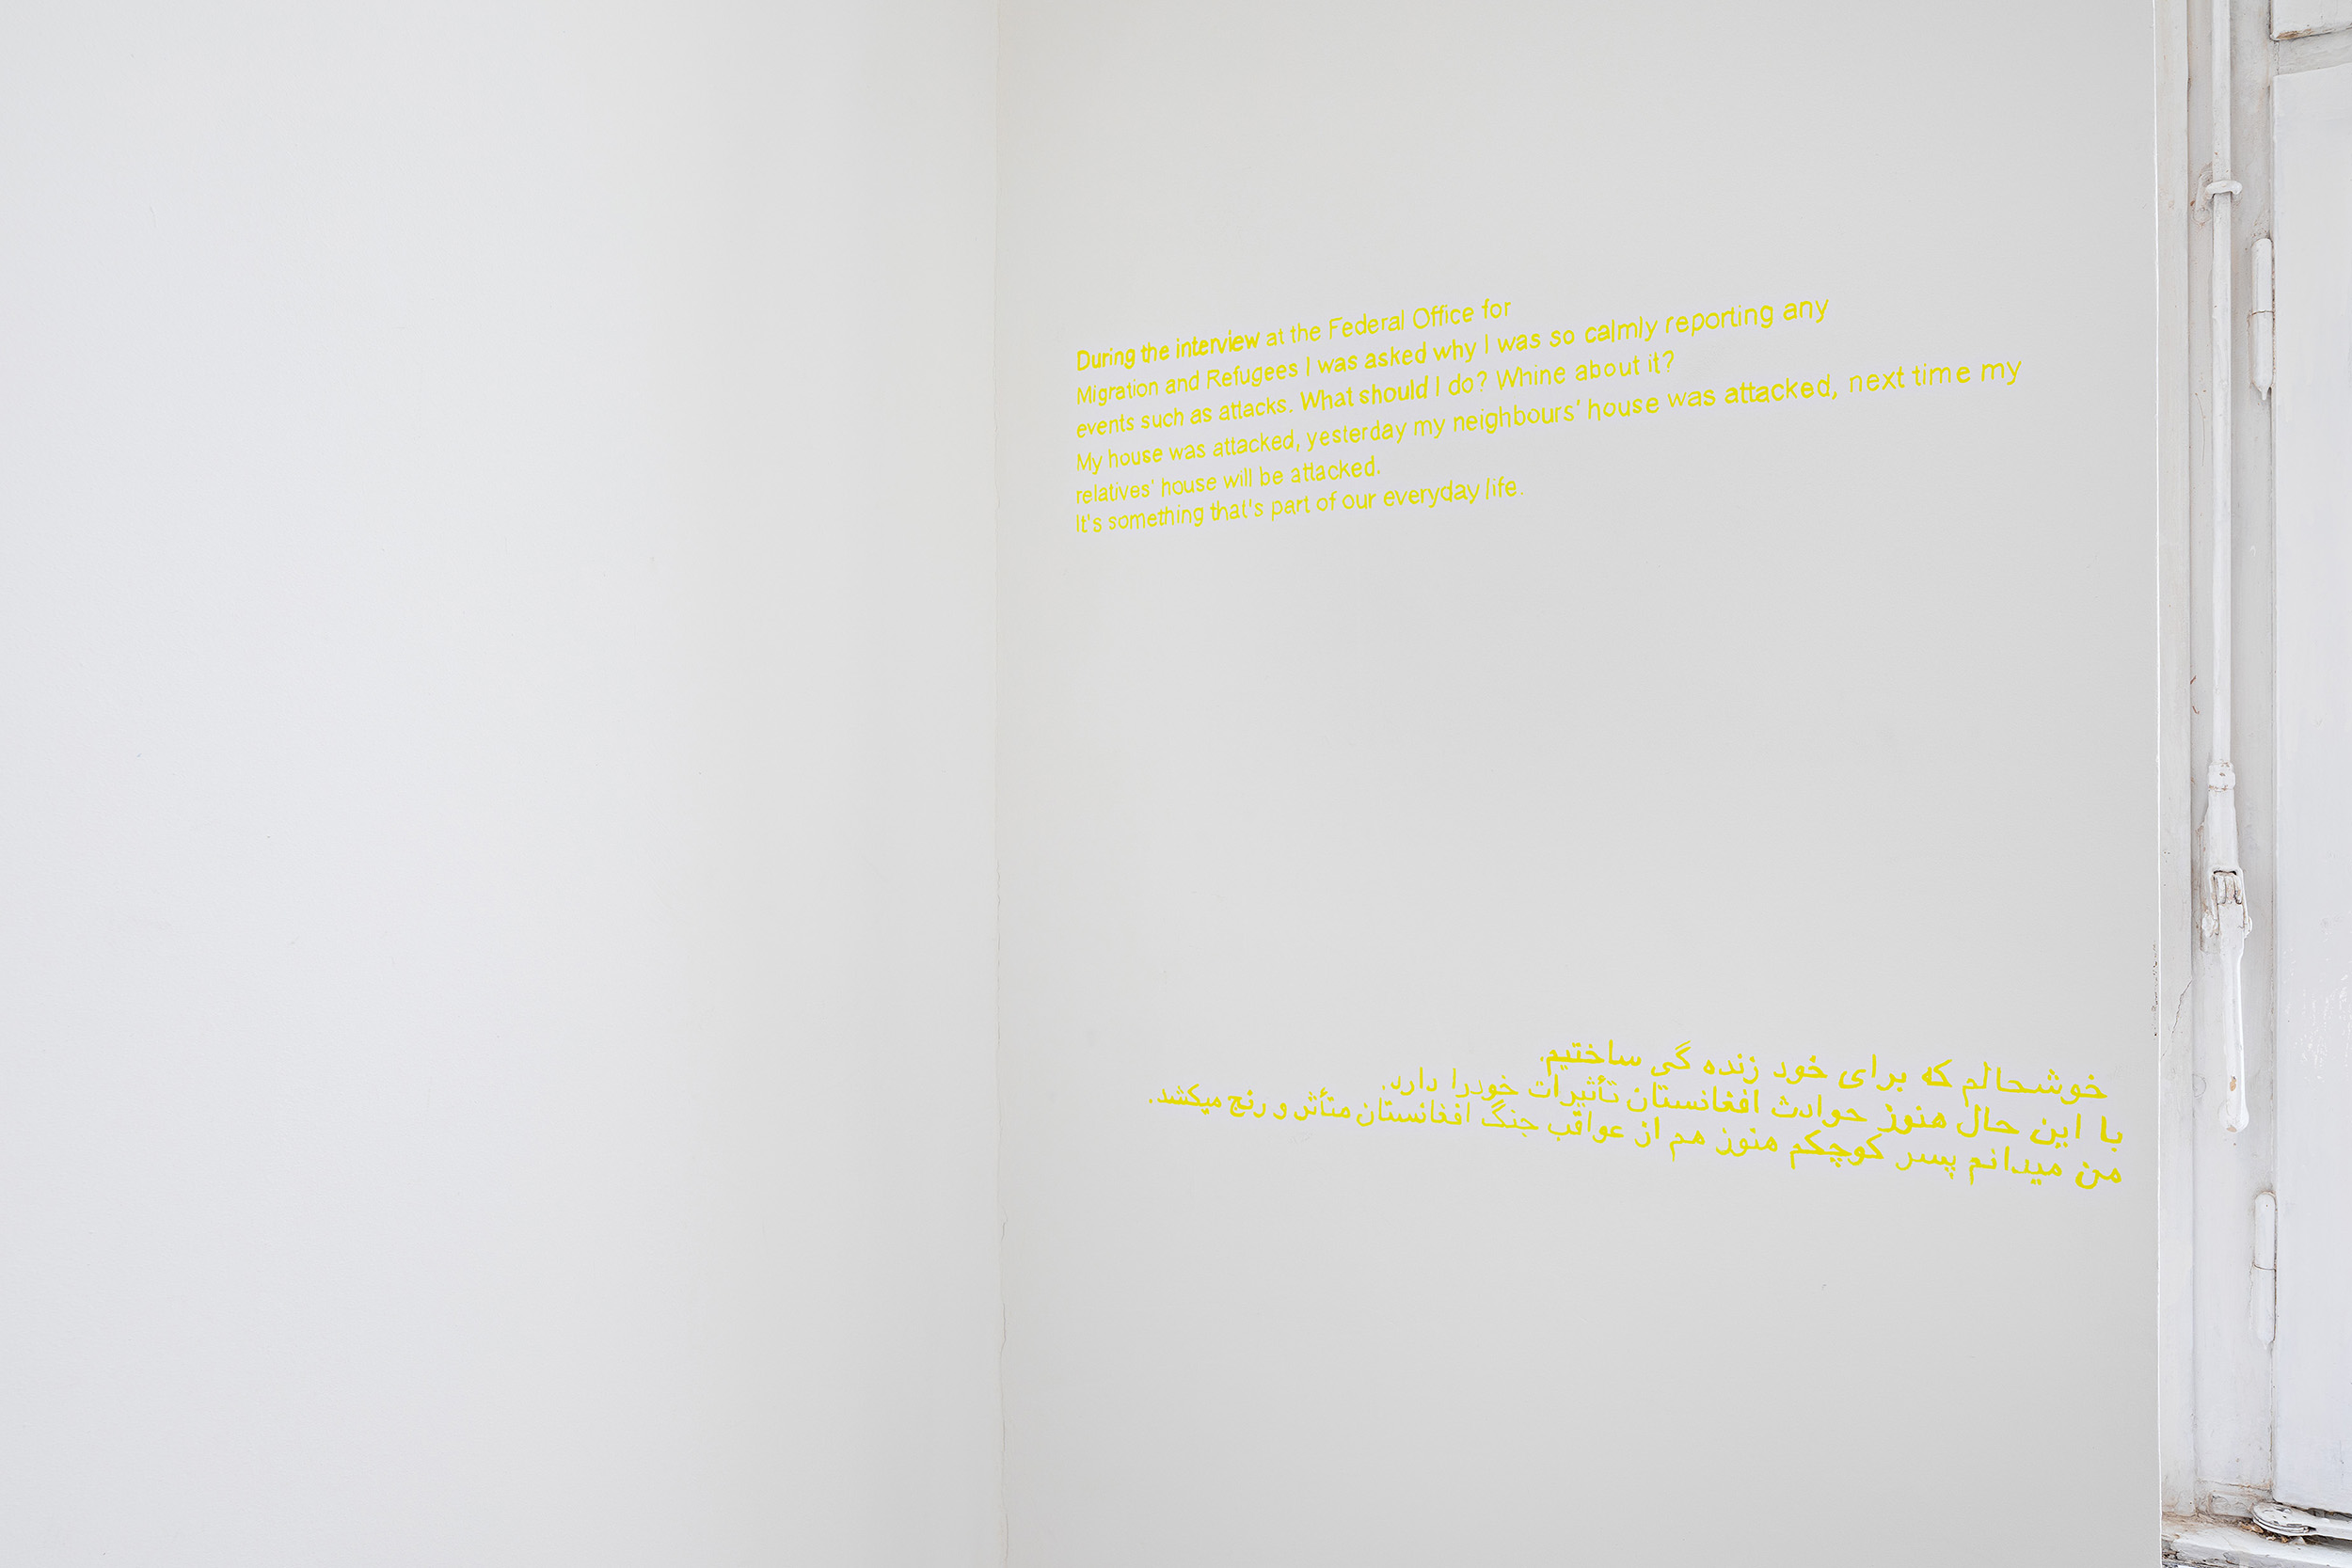 During the interview at the Federal Office for
Migration and Refugees I was asked why I was so calmly reporting any
events such as attacks. What should I do? Whine about it?
My house was attacked, yesterday my neighbours' house was attacked, next time my
relatives' house will be attacked.
It's something that's part of our everyday life.
خوشحالم که برای خود زنده گی ساختیم.
با این حال هنوز حوادث افغانستان تأثیرات خودرا دارد.
من میدانم پسر کوچکم هنوز هم از عواقب جنگ افغانستان متأثر و رنج میکشد.